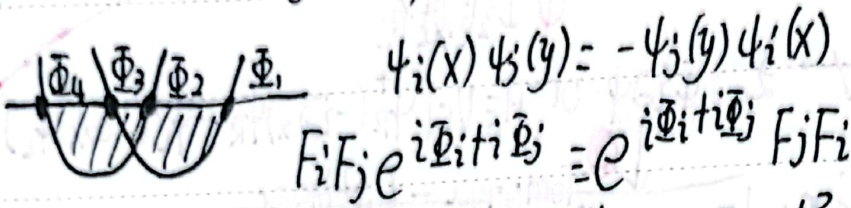 Φ̄₄ Φ̄₃ Φ̄₂ Φ̄₁
ψᵢ(x) ψⱼ(y) = -ψⱼ(y) ψᵢ(x)
FᵢFⱼe^{iΦ̄ᵢ+iΦ̄ⱼ} = e^{iΦ̄ᵢ+iΦ̄ⱼ} FⱼFᵢ